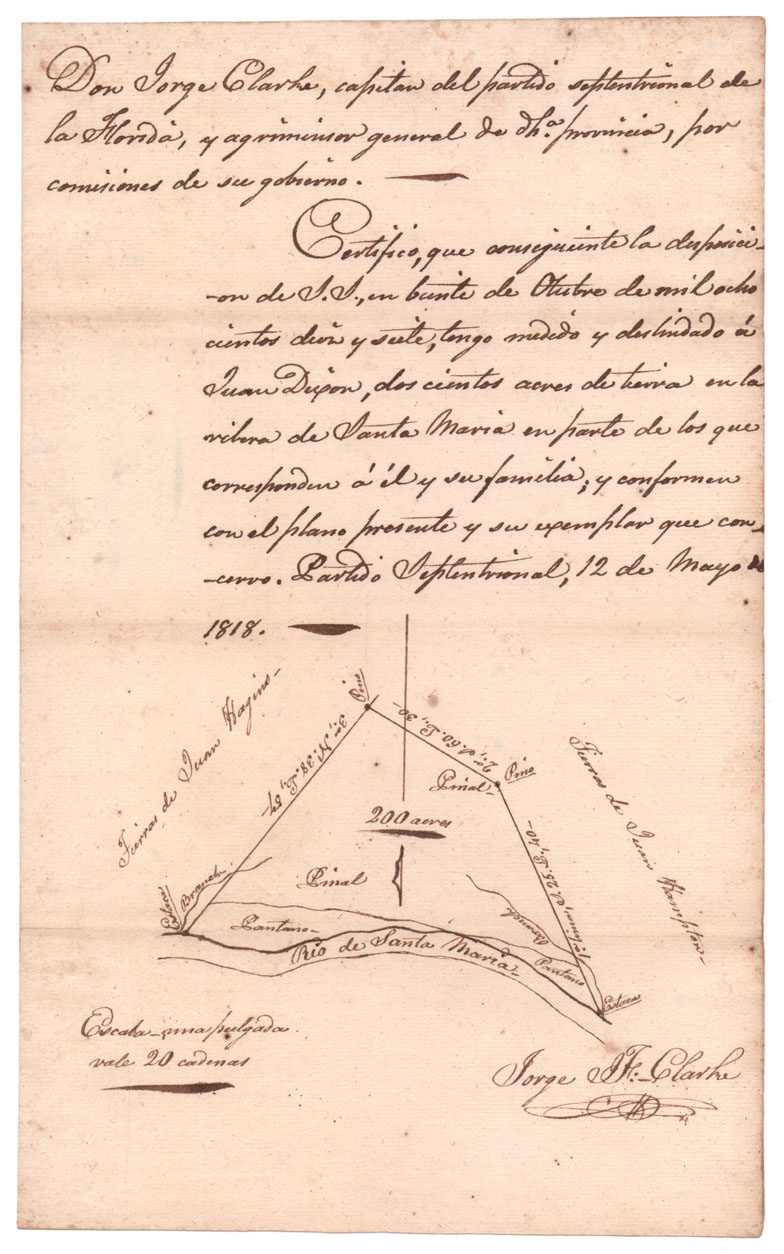 Don Jorge Clarke, capitan del partido septentrional de
la Florida, y agriminsor general de dhª. provincia, por
comisiones de su gobierno.
Certifico, que consiguiente la disposici-
-on de S.S., en beinte de Otubre de mil ocho
cientos diez y siete, tengo medido y deslindado á
Juan Dixon, dos cientos acres de tierra en la
ribera de Santa Maria en parte de los que
corresponden á él y su familia; y conformen
con el plano presente y su exemplar que con-
-cervo. Partido Septentrional, 12 de Mayo de
1818.
Tierras de Juan Hagins-
Pino
3ª; N. 38. E; 57-
2ª; S. 60. E; 30-
Pinal-
Pino
Tierras de Juan Hampton-
200 acres
S. 25. E; 40-
Estaca
Branch
Pinal
Pantano-
Rio de Santa Maria-
Branch
Pantano
Estaca
Escala-una pulgada
vale 20 cadenas
Jorge J. F. Clarke